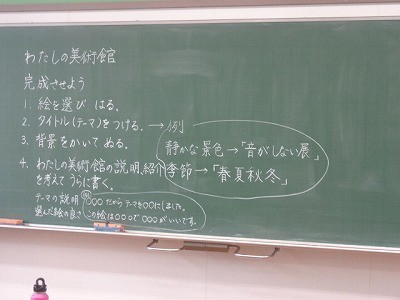 わたしの美術館
完成させよう
1. 絵を選び はる.
2. タイトル(テーマ)をつける. → 例
静かな景色→「音がしない展」
3. 背景をかいて ぬる.
4. わたしの美術館の説明,紹介
季節→「春夏秋冬」
を考えて うらに書く.
テーマの説明
選んだ絵の良さ
例 ○○だからテーマを○○にしました。
この絵は○○○で○○○がいいです。